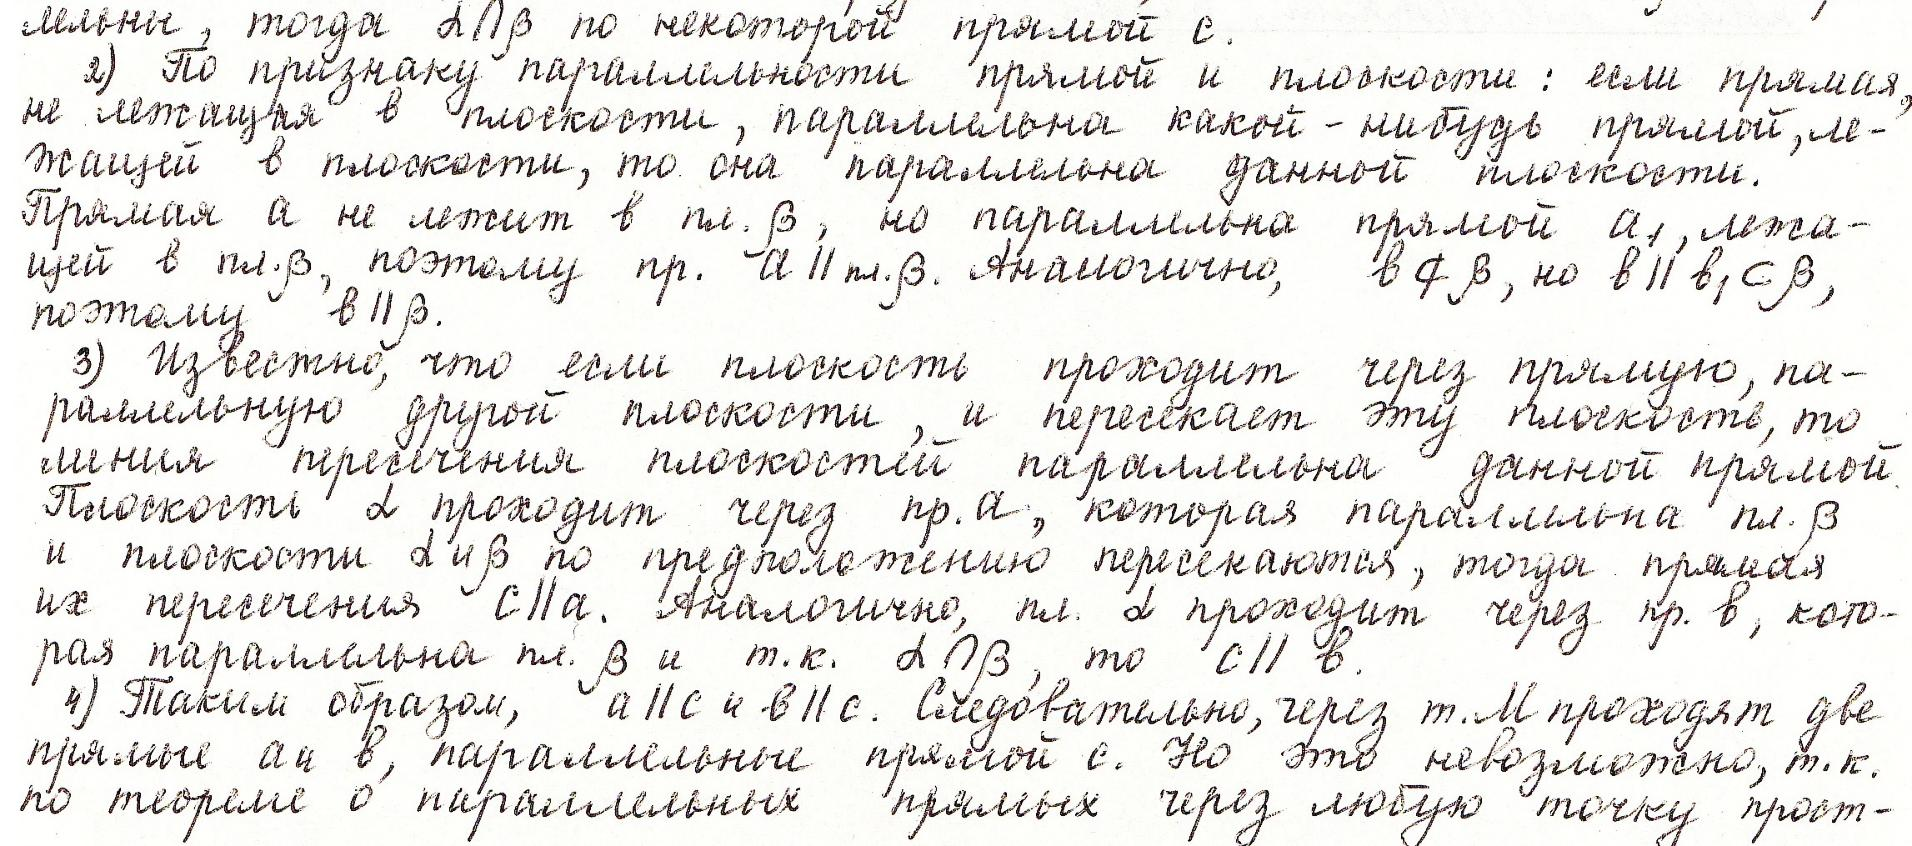 лельны, тогда α∩β по некоторой прямой с.
2) По признаку параллельности прямой и плоскости: если прямая,
не лежащая в плоскости, параллельна какой-нибудь прямой, ле-
жащей в плоскости, то она параллельна данной плоскости.
Прямая а не лежит в пл. β, но параллельна прямой а₁, лежа-
щей в пл. β, поэтому пр. а || пл. β. Аналогично, в ⊄ β, но в || в₁ ⊂ β,
поэтому в || β.
3) Известно, что если плоскость проходит через прямую, па-
раллельную другой плоскости, и пересекает эту плоскость, то
линия пересечения плоскостей параллельна данной прямой.
Плоскость α проходит через пр. а, которая параллельна пл. β
и плоскости α и β по предположению пересекаются, тогда прямая
их пересечения с || а. Аналогично, пл. α проходит через пр. в, кото-
рая параллельна пл. β и т.к. α∩β, то с || в.
4) Таким образом, а || с и в || с. Следовательно, через т. М проходят две
прямые а и в, параллельные прямой с. Но это невозможно, т.к.
по теореме о параллельных прямых через любую точку прост-